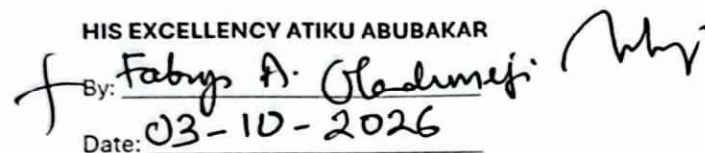 HIS EXCELLENCY ATIKU ABUBAKAR
By: Fabiyi A. Oladimeji
Date: 03-10-2026